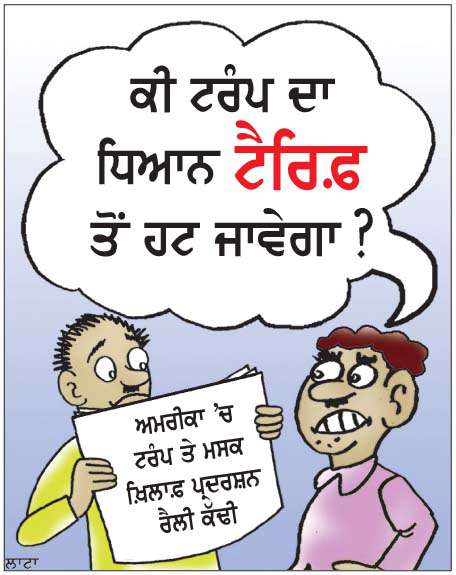 ਕੀ ਟਰੰਪ ਦਾ
ਧਿਆਨ ਟੈਰਿਫ਼
ਤੋਂ ਹਟ ਜਾਵੇਗਾ ?
ਅਮਰੀਕਾ ’ਚ
ਟਰੰਪ ਤੇ ਮਸਕ
ਖ਼ਿਲਾਫ਼ ਪ੍ਰਦਰਸ਼ਨ
ਰੈਲੀ ਕੱਢੀ
ਲਾਟਾ